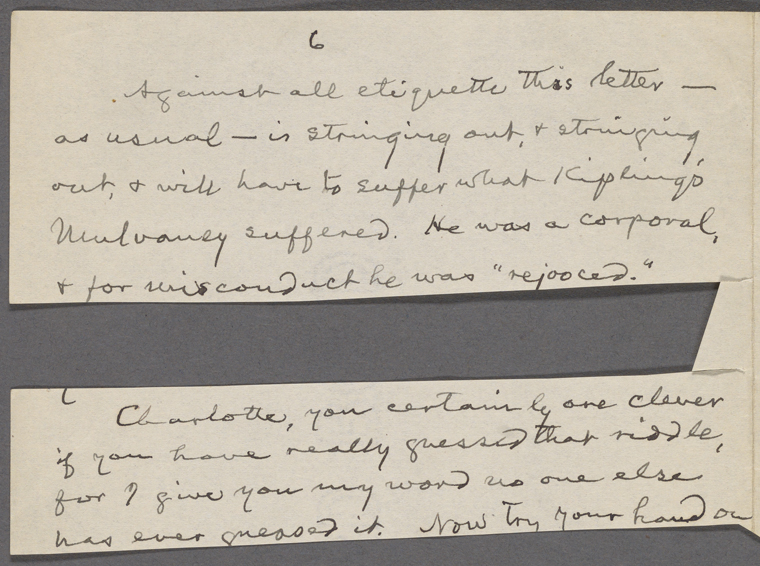 6
Against all etiquette this letter —
as usual — is stringing out, & stringing
out, & will have to suffer what Kipling's
Mulvaney suffered. He was a corporal,
& for misconduct he was "rejooced."
Charlotte, you certainly are clever
if you have really guessed that riddle,
for I give you my word no one else
has ever guessed it. Now try your hand on